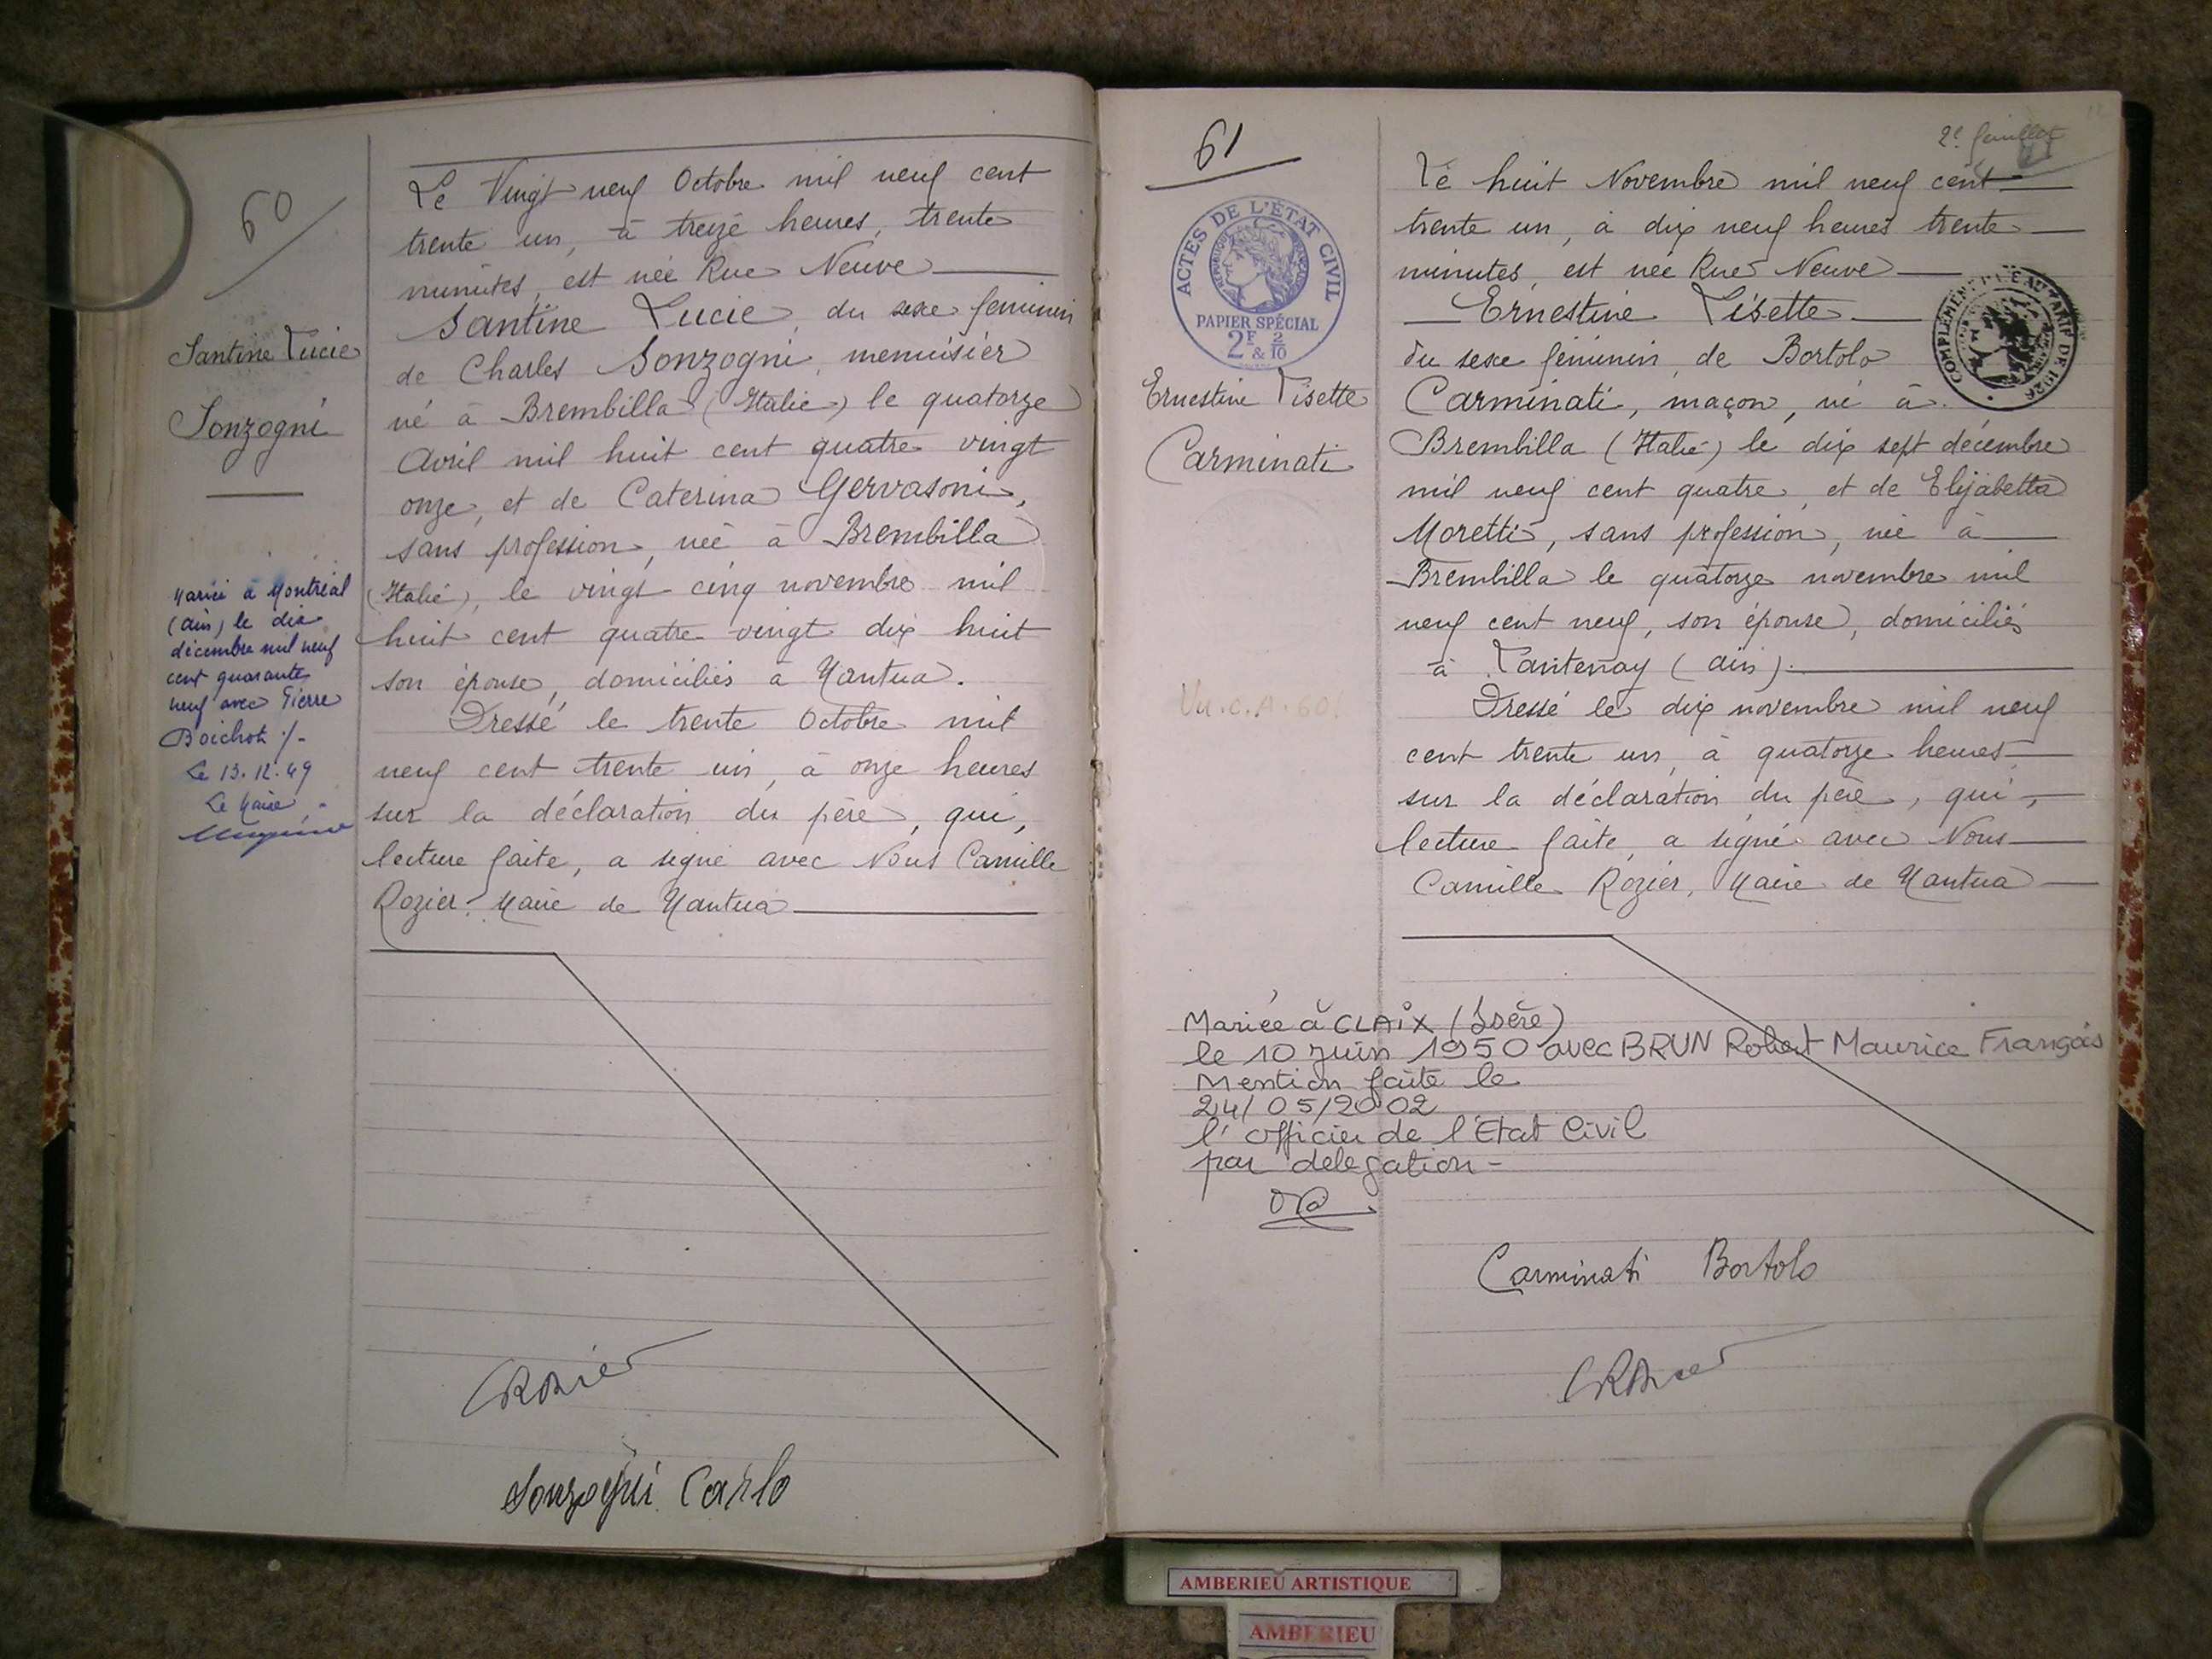 60
Santine Lucie
Sonzogni
Mariée à Montréal
(Ain) le dix
décembre mil neuf
cent quarante
neuf avec Pierre
Boichot ./-
Le 13.12.49
Le Maire -
Le Vingt neuf Octobre mil neuf cent
trente un, à treize heures, trente
minutes, est née Rue Neuve
Santine Lucie, du sexe féminin
de Charles Sonzogni, menuisier
né à Brembilla (Italie) le quatorze
Avril mil huit cent quatre vingt
onze, et de Caterina Gervasoni,
sans profession, née à Brembilla
(Italie), le vingt cinq novembre mil
huit cent quatre vingt dix huit
son épouse, domiciliés à Nantua.
Dressé le trente Octobre mil
neuf cent trente un, à onze heures
sur la déclaration du père, qui,
lecture faite, a signé avec Nous Camille
Rozier, Maire de Nantua
CRozier
Sonzogni Carlo
61
ACTES DE L'ÉTAT CIVIL
RÉPUBLIQUE FRANÇAISE
PAPIER SPÉCIAL
2F 2/10
&
Ernestine Lisette
Carminati
Vu.C.A.60.
2e feuillet
Le huit Novembre mil neuf cent
trente un, à dix neuf heures trente
minutes, est née Rue Neuve
Ernestine Lisette
du sexe féminin, de Bortolo
COMPLÉMENT AU TARIF DE 1926
Carminati, maçon, né à
Brembilla (Italie) le dix sept décembre
mil neuf cent quatre, et de Elisabetta
Moretti, sans profession, née à
Brembilla le quatorze novembre mil
neuf cent neuf, son épouse, domiciliés
à Lantenay (Ain).
Dressé le dix novembre mil neuf
cent trente un, à quatorze heures
sur la déclaration du père, qui,
lecture faite, a signé avec Nous
Camille Rozier, Maire de Nantua
Mariée à CLAIX (Isère)
le 10 Juin 1950 avec BRUN Robert Maurice François
Mention faite le
24/05/2002
l'officier de l'Etat Civil
par délégation -
Carminati Bortolo
CRozier
AMBERIEU ARTISTIQUE
AMBERIEU